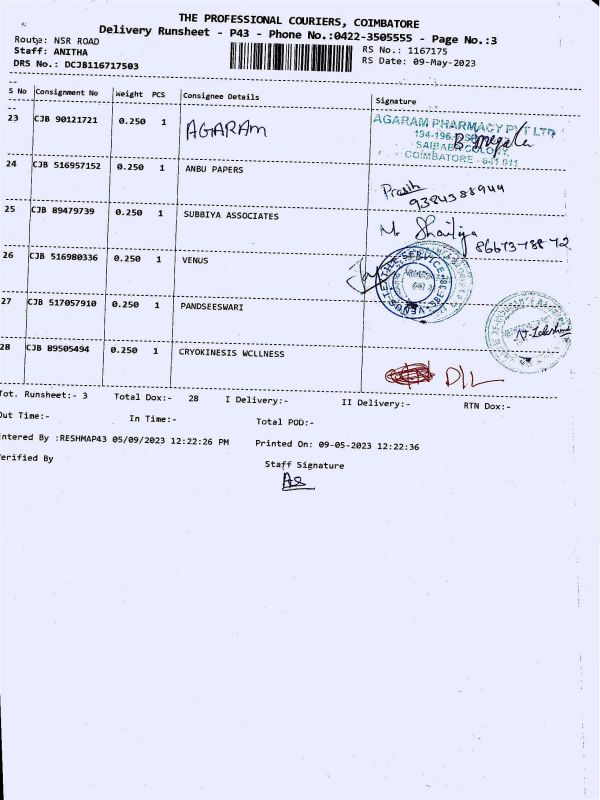 THE PROFESSIONAL COURIERS, COIMBATORE
Delivery Runsheet - P43 - Phone No.:0422-3505555 - Page No.:3
Route: NSR ROAD RS No.: 1167175
Staff: ANITHA RS Date: 09-May-2023
DRS No.: DCJB116717503
S No Consignment No Weight PCS Consignee Details Signature
23 CJB 90121721 0.250 1 AGARAM
AGARAM PHARMACY PVT LTD
SAIBABA COLONY,
COIMBATORE - 641 011
24 CJB 516957152 0.250 1 ANBU PAPERS
9384388944
25 CJB 89479739 0.250 1 SUBBIYA ASSOCIATES
26 CJB 516980336 0.250 1 VENUS
27 CJB 517057910 0.250 1 PANDSEESWARI
28 CJB 89505494 0.250 1 CRYOKINESIS WCLLNESS
D/L
Tot. Runsheet:- 3 Total Dox:- 28 I Delivery:- II Delivery:- RTN Dox:-
Out Time:- In Time:- Total POD:-
Entered By :RESHMAP43 05/09/2023 12:22:26 PM Printed On: 09-05-2023 12:22:36
Verified By Staff Signature